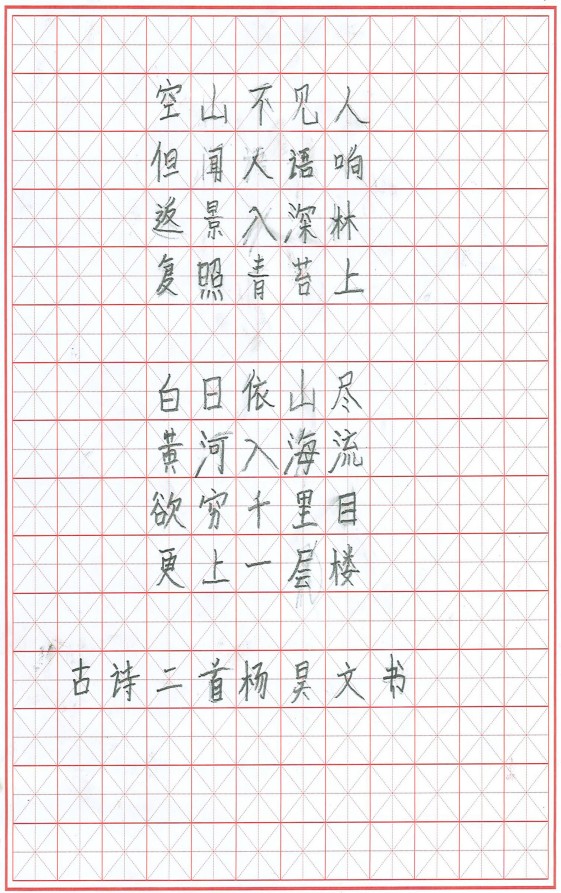 空山不见人
但闻人语响
返景入深林
复照青苔上
白日依山尽
黄河入海流
欲穷千里目
更上一层楼
古诗二首杨昊文书